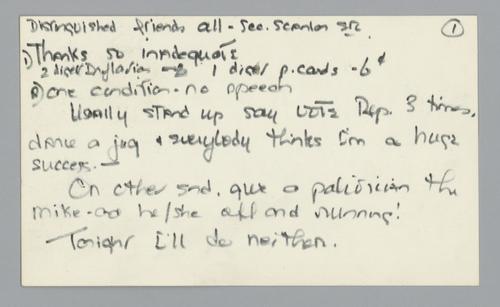 Distinguished friends all - Sec. Scanlon Sr. ①
1) Thanks so inadequate
2 digit Inflation - 1 digit p. cards - 6¢
2) one condition - no speech
Usually stand up say vote Rep. 3 times,
dance a jug & everybody thinks I'm a huge
success. -
On other end, give a politician the
mike - and he/she off and running!
Tonight I'll do neither.